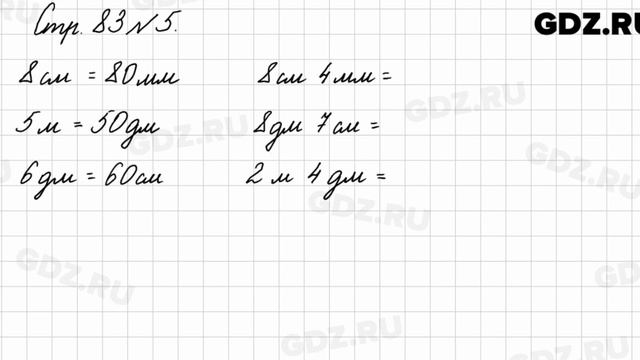 Стр. 83 № 5.
GDZ.RU
8 см = 80 мм 8 см 4 мм =
5 м = 50 дм 8 дм 7 см =
6 дм = 60 см 2 м 4 дм =
GDZ.RU
GDZ.RU
GDZ.RU
GDZ.RU
GDZ.RU
GDZ.RU